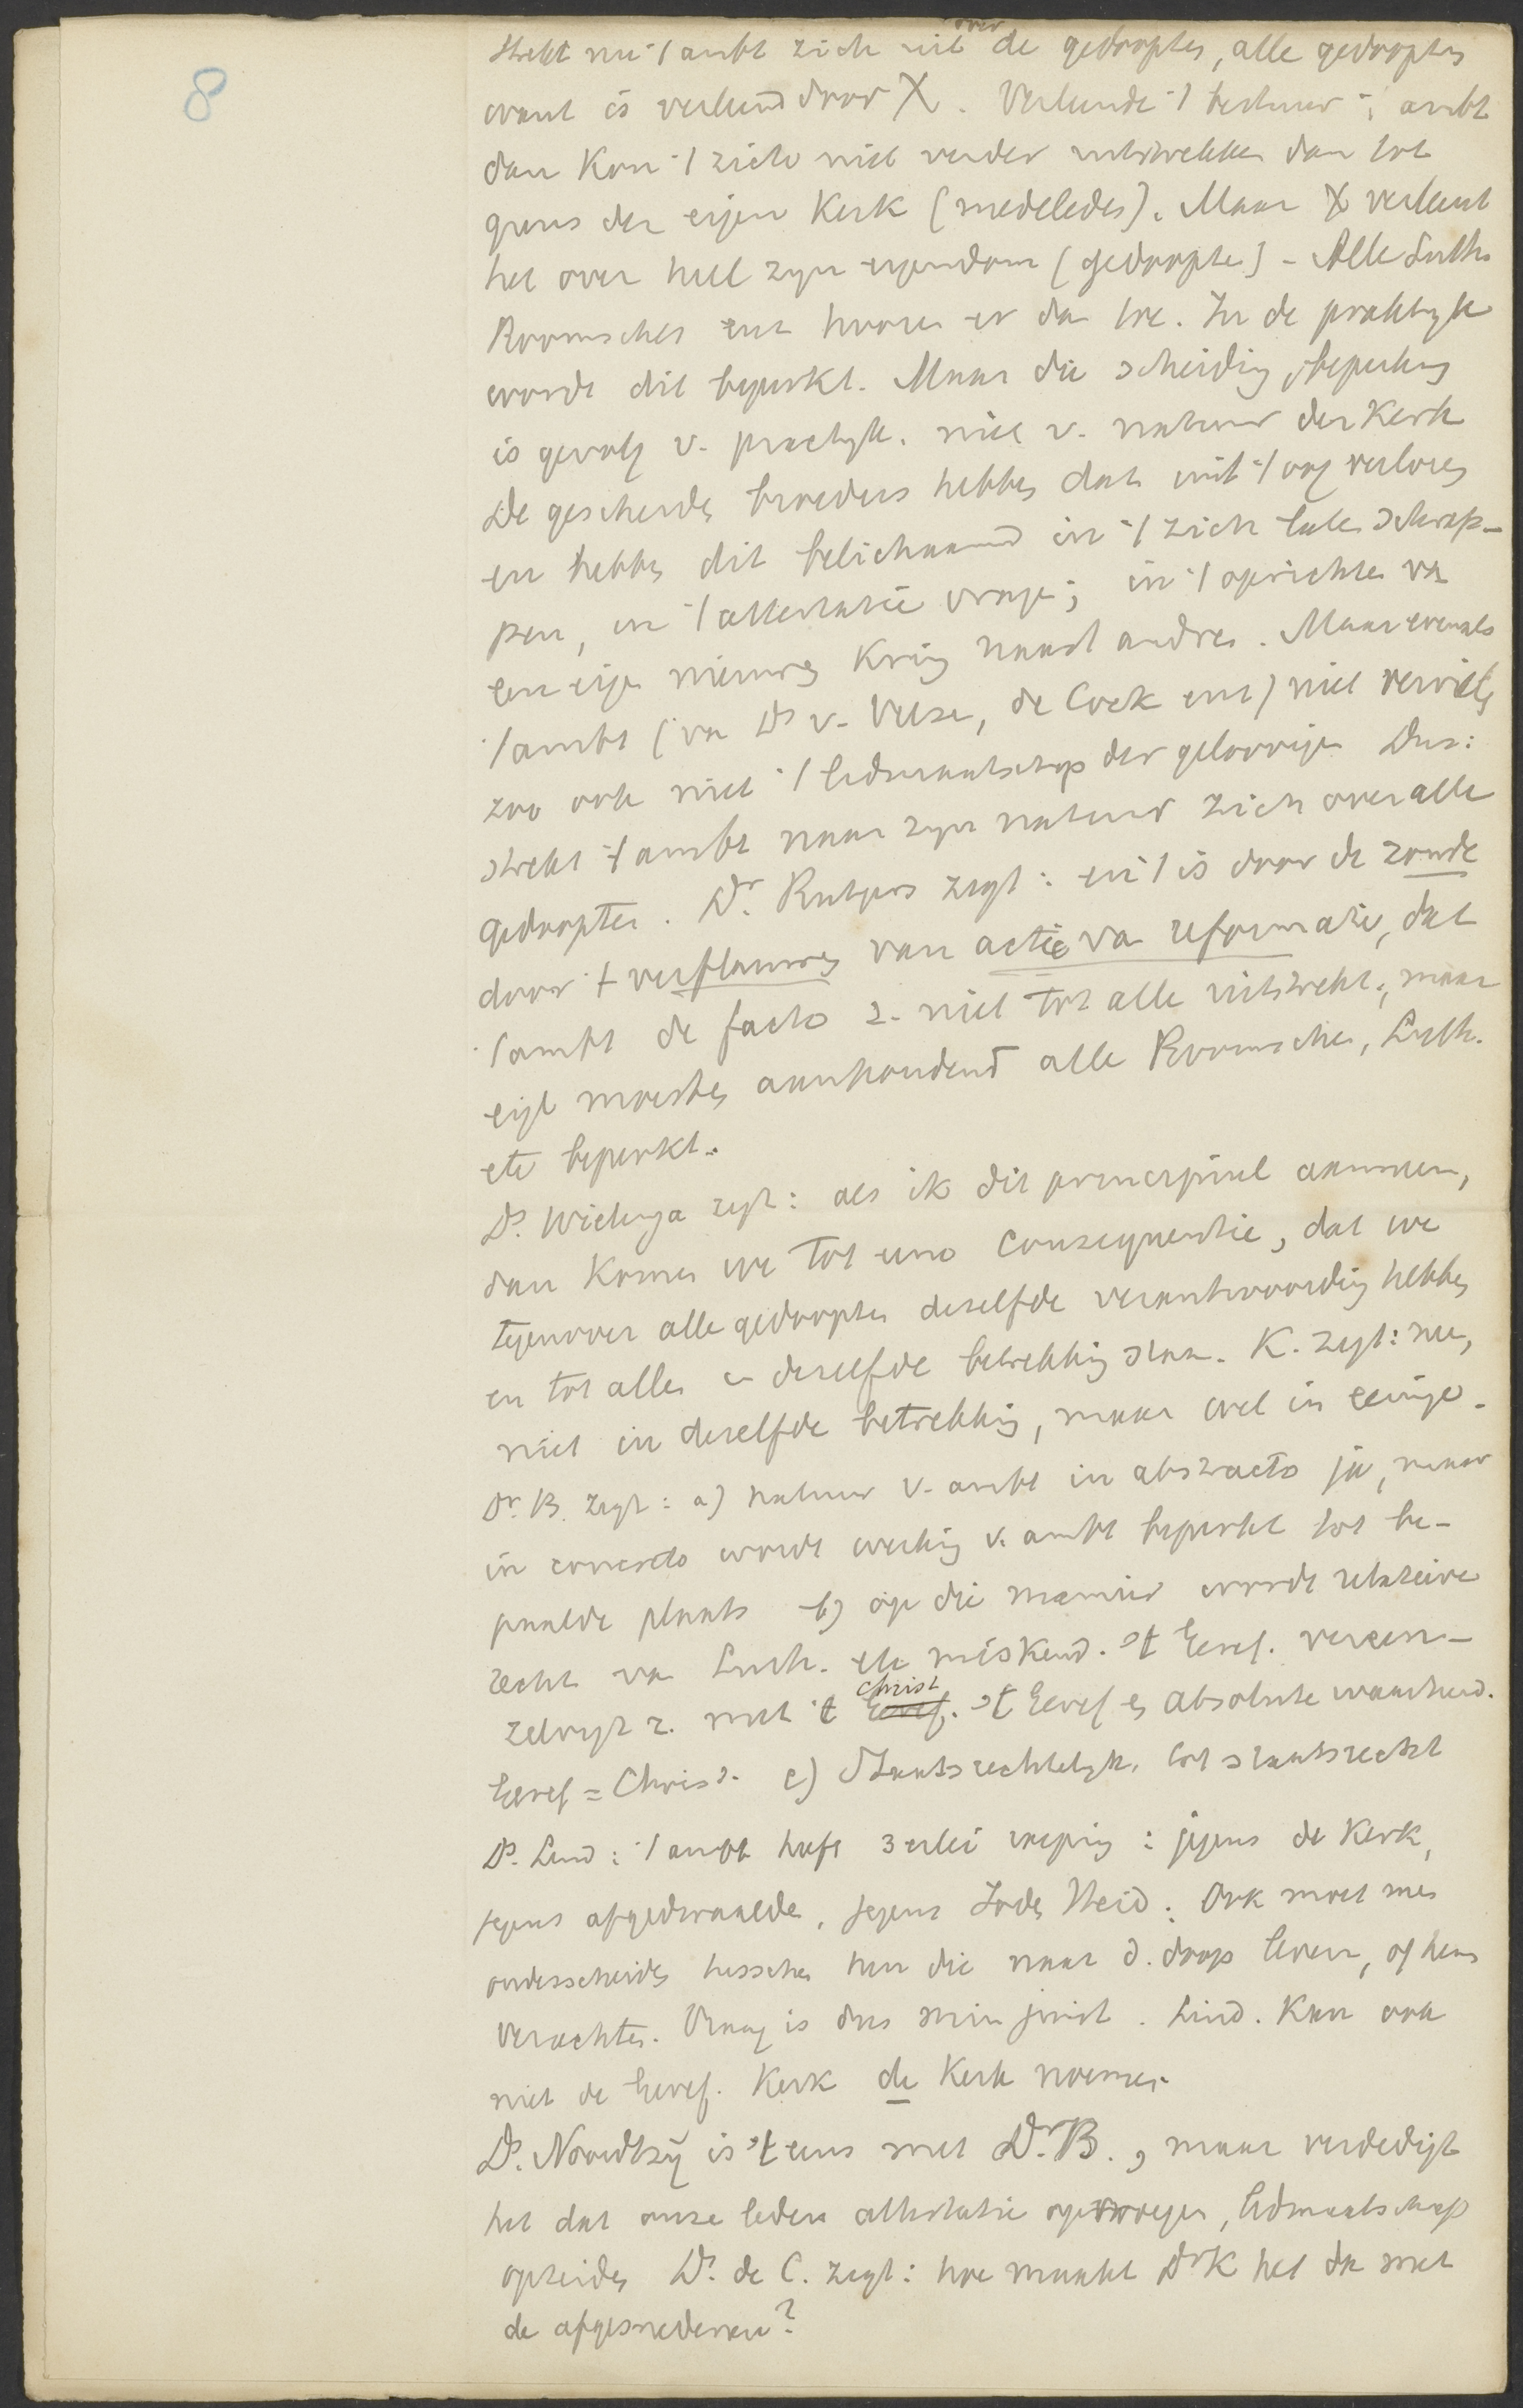 8
strekt nu 't ambt zich uit over de gedoopten, alle gedoopten
want is verleend door X. Verleende 't bestuur 't ambt
dan kon 't zich niet verder uitstrekken dan tot
grens der eigen Kerk (medeleden). Maar X verleent
het over heel zijn eigendom (gedoopten) - Alle Luth.
Roomschen enz hooren er dan toe. In de praktijk
wordt dit beperkt. Maar die scheiding, beperking
is gevolg v. practijk. niet v. natuur der Kerk
De gescheiden broeders hebben dat uit 't oog verloren
en hebben dit belichaamd in 't zich laten schrap-
pen, in 't attestatie vragen; in 't oprichten van
een eigen nieuwen Kring naast andere. Maar evenals
't ambt (van Ds v. Velzen, de Cock enz) niet verviel,
zoo ook niet 't lidmaatschap der geloovigen Dus:
strekt 't ambt naar zijn natuur zich over alle
gedoopten. Dr. Rutgers zegt: en 't is door de zonde
door 't verflauwen van actie van reformatie, dat
't ambt de facto z. niet tot alle uitstrekt, maar
eigl moesten aanhoudend alle Roomschen, Luth.
etc beperkt.
Ds. Wielenga zegt: als ik dit principieel aanneem,
dan komen we tot enz consequentie, dat we
tegenover alle gedoopten dezelfde verantwoording hebben
en tot allen in dezelfde betrekking staan. K. zegt: nee,
niet in dezelfde betrekking, maar wel in eenige.
Dr. B. zegt: a) natuur v. ambt in abstracto ja, maar
in concreto wordt werking v. ambt beperkt tot be-
paalde plaats b) op die manier wordt relatieve
recht van Luth. etc miskend. 't Geref. vereen-
zelvigt z. met 't Geref. Christ. 't Geref en absolute waarheid.
Geref = Christ. c) Staatsrechtelijk. tot staatsrecht
Ds. Lind: 't ambt heeft 3 erlei roeping: jegens de Kerk,
jegens afgedwaalden, jegens Joden Heid. Ook moet men
onderscheiden tusschen hen die naar d. doop leven, of hem
verachten. Vraag is dus min juist. Lind. kan ook
niet de Geref. Kerk de Kerk noemen.
Ds. Noordtzij is 't eens met Dr. B., maar verdedigt
het dat onze leden attestatie opvragen, lidmaatschap
opzeiden Ds. de C. zegt: hoe maakt Dr K het dan met
de afgesnedenen?